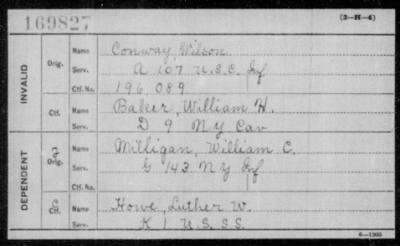 169827
(3-H-4)
INVALID
Orig.
Name Conway, Wilson
Serv. A 107 U.S.C. Inf
Ctf. No. 196,089
Ctf.
Name Baker, William H.
Serv. D 9 N Y Cav
DEPENDENT
Orig.
Name Milligan, William C.
Serv. G 143 N Y Inf
Ctf. No.
Ctf.
Name Howe, Luther W.
Serv. K 1 U.S.S.S.
6—1905